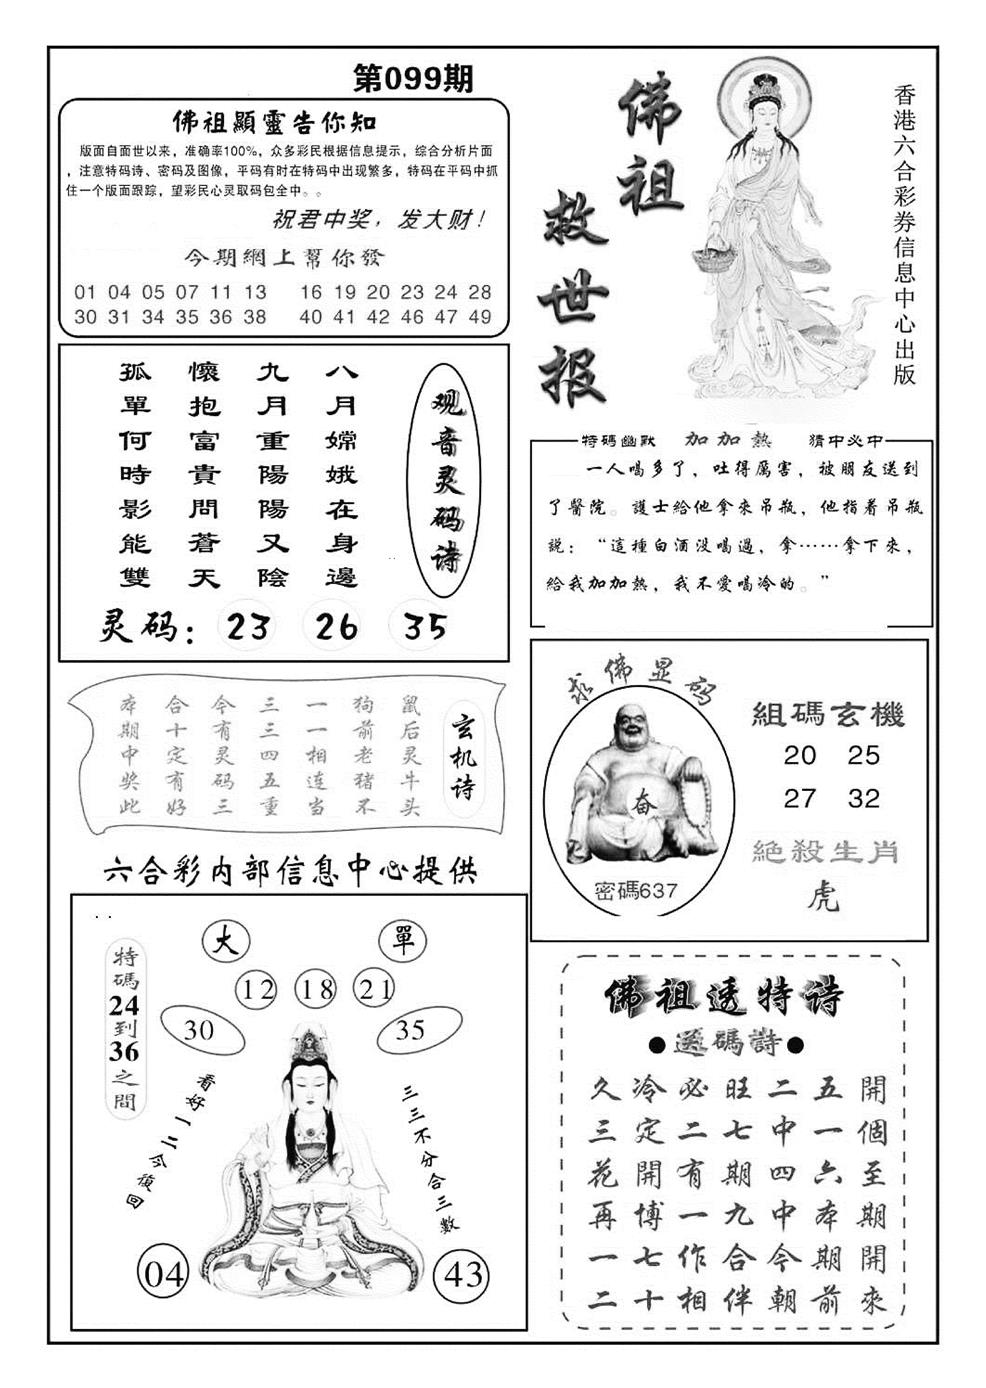 第099期
佛祖顯靈告你知
版面自面世以来，准确率100%，众多彩民根据信息提示，综合分析片面
，注意特码诗、密码及图像，平码有时在特码中出现繁多，特码在平码中抓
住一个版面跟踪，望彩民心灵取码包全中。。
祝君中奖，发大财！
今期網上幫你發
01 04 05 07 11 13 16 19 20 23 24 28
30 31 34 35 36 38 40 41 42 46 47 49
佛祖
救世报
香港六合彩券信息中心出版
观音灵码诗
八月嫦娥在身邊
九月重陽陽又陰
懷抱富貴問蒼天
孤單何時影能雙
灵码：23 26 35
特碼幽默 加加熱 猜中必中
一人喝多了，吐得厲害，被朋友送到
了醫院。護士給他拿來吊瓶，他指着吊瓶
説：“這種白酒没喝過，拿……拿下來，
給我加加熱，我不愛喝冷的。”
玄机诗
鼠后灵牛头
狗前老猪不
一一相连当
三三四五重
今有灵码三
合十定有好
本期中奖此
求佛显码
奋
密碼637
組碼玄機
20 25
27 32
絕殺生肖
虎
六合彩内部信息中心提供
特碼24到36之間
大
單
12 18 21
30
35
看好一二今復回
三三不分合三數
04
43
佛祖透特诗
●送碼詩●
久冷必旺二五開
三定二七中一個
花開有期四六至
再博一九中本期
一七作合今期開
二十相伴朝前來